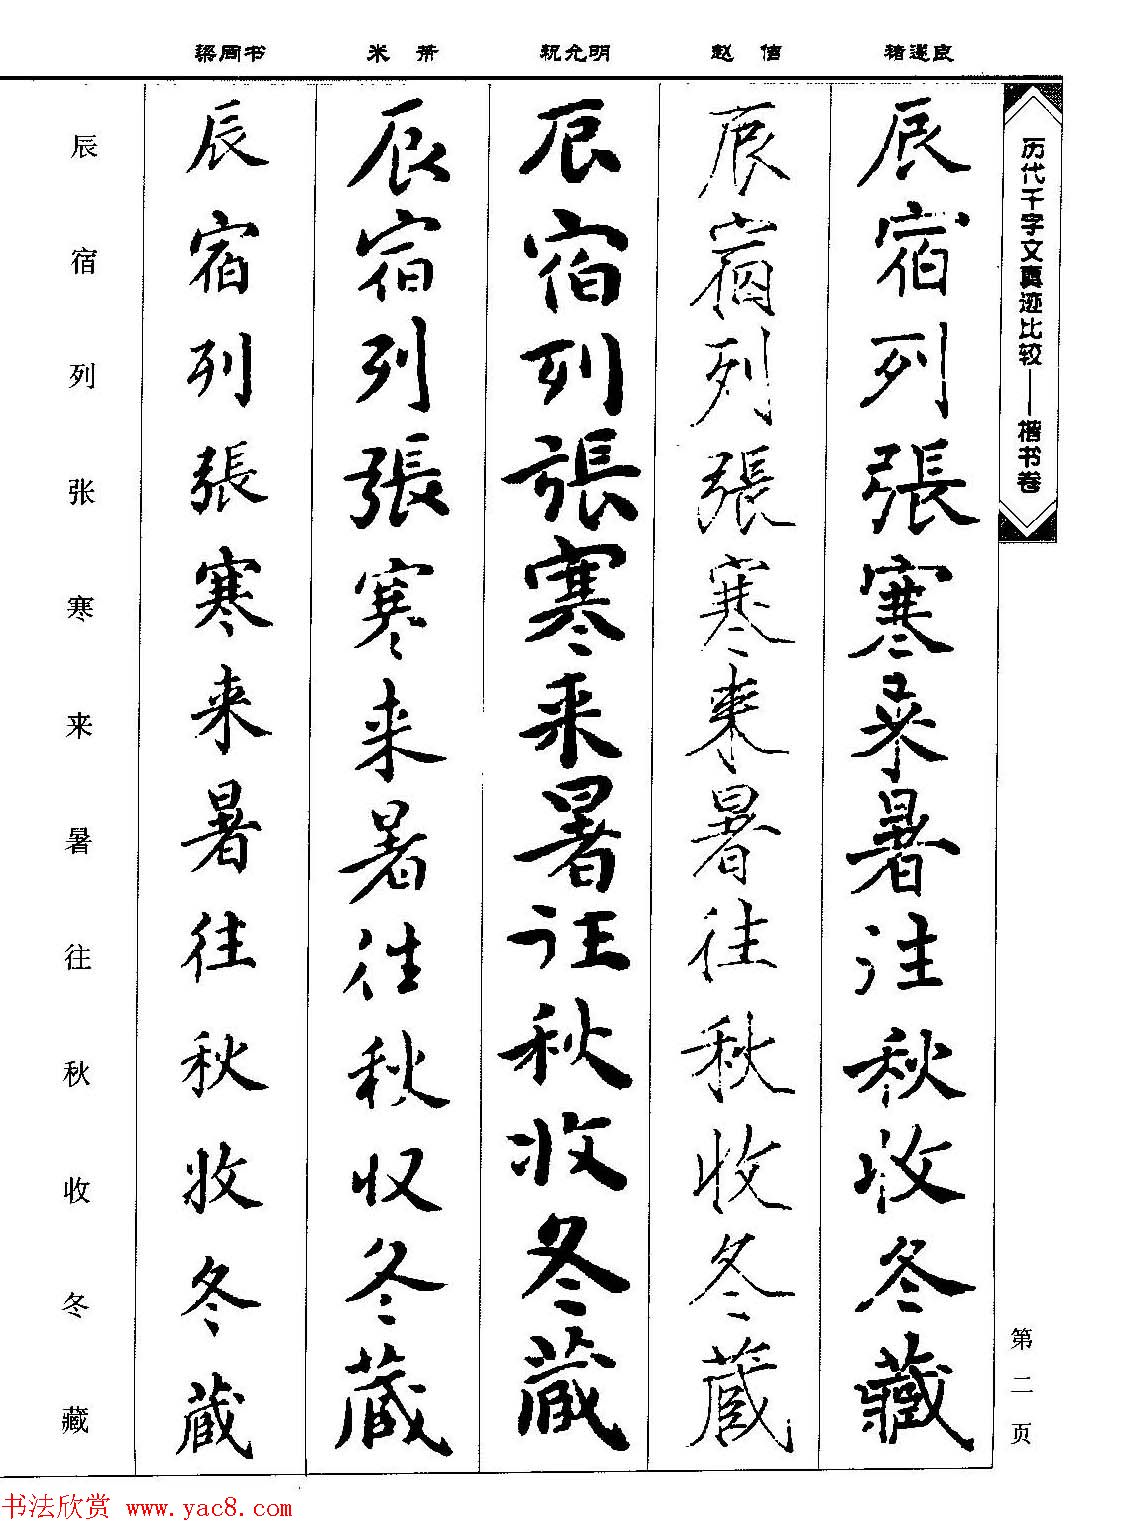 梁同书 米 芾 祝允明 赵 佶 褚遂良
历代千字文真迹比较——楷书卷
第二页
辰宿列張寒来暑往秋收冬藏
辰宿列張寒来暑往秋收冬藏
辰宿列張寒来暑往秋收冬藏
辰宿列張寒来暑往秋收冬藏
辰宿列張寒来暑往秋收冬藏
辰宿列张寒来暑往秋收冬藏
书法欣赏 www.yac8.com